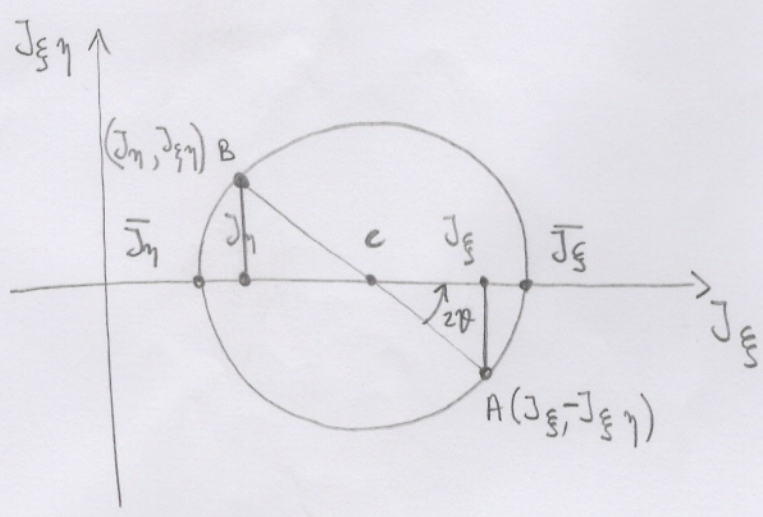 Jξη
(Jη, Jξη) B
J̄η
Jη
c
Jξ
J̄ξ
2ϑ
Jξ
A(Jξ,-Jξη)